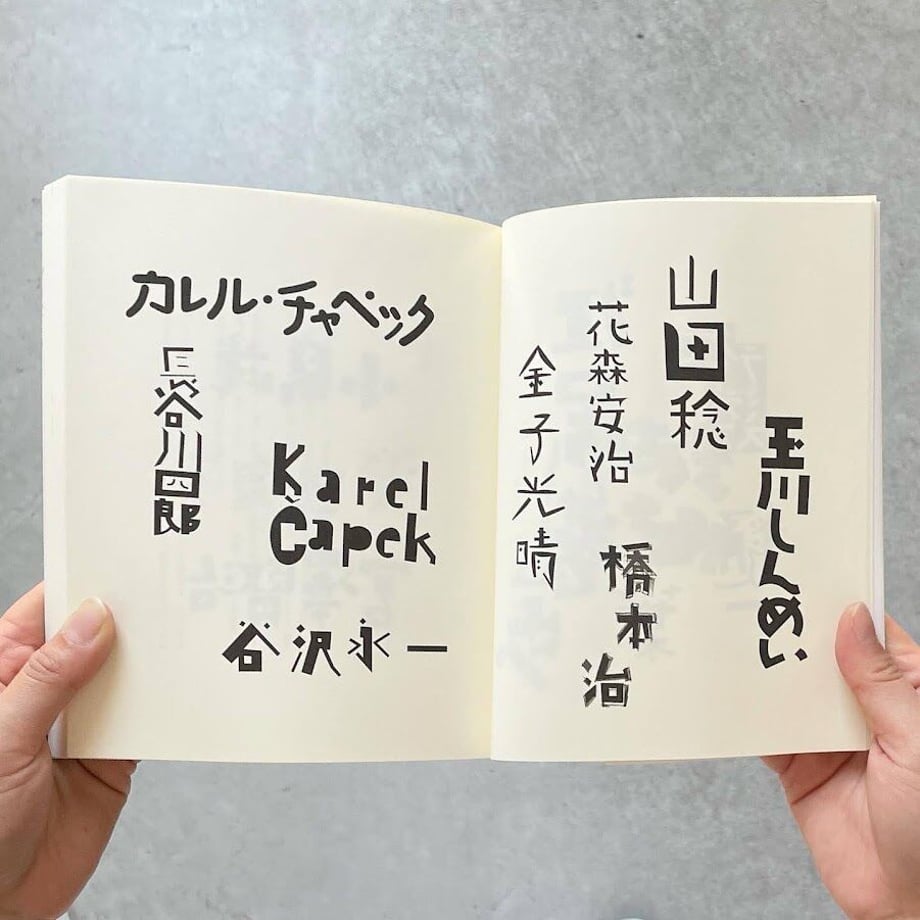 カレル・チャペック
長谷川四郎
Karel
Čapek
谷沢永一
玉川しんめい
山田稔
花森安治
橋本治
金子光晴